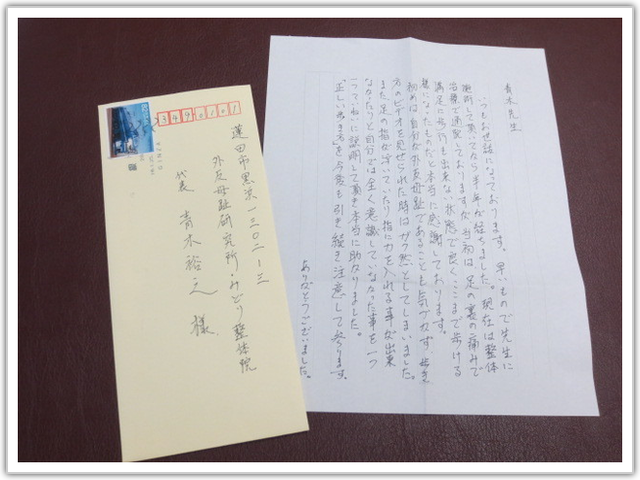 青木先生
いつもお世話になっております。早いもので先生に
施術して頂いてから半年が経ちました。現在は整体
治療で通院しておりますが当初は足の裏の痛みで
満足に歩行も出来ない状態で良くここまで歩ける
様になったものだと本当に感謝しております。
初めは自分が外反母趾であることも気づかず、歩き
方のビデオを見せられた時はガク然としてしまいました。
また足の指が浮いていたり指に力を入れる事が出来
なかったりと自分では全く意識していなかった事を一つ
一つていねいに説明して頂き本当に助かりました。
"正しい歩き方"を今後も引き続き注意して参ります。
ありがとうございました。
3490101
蓮田市黒浜一三〇二ー三
外反母趾研究所・みどり整体院
代表 青木裕之 様